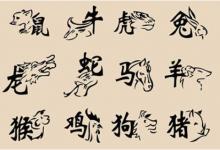 鼠 牛 虎 兔
虎 蛇 马 羊
猴 鸡 狗 猪